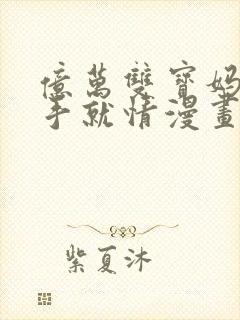 億萬雙寶媽
手就情漫畫
紫夏沐